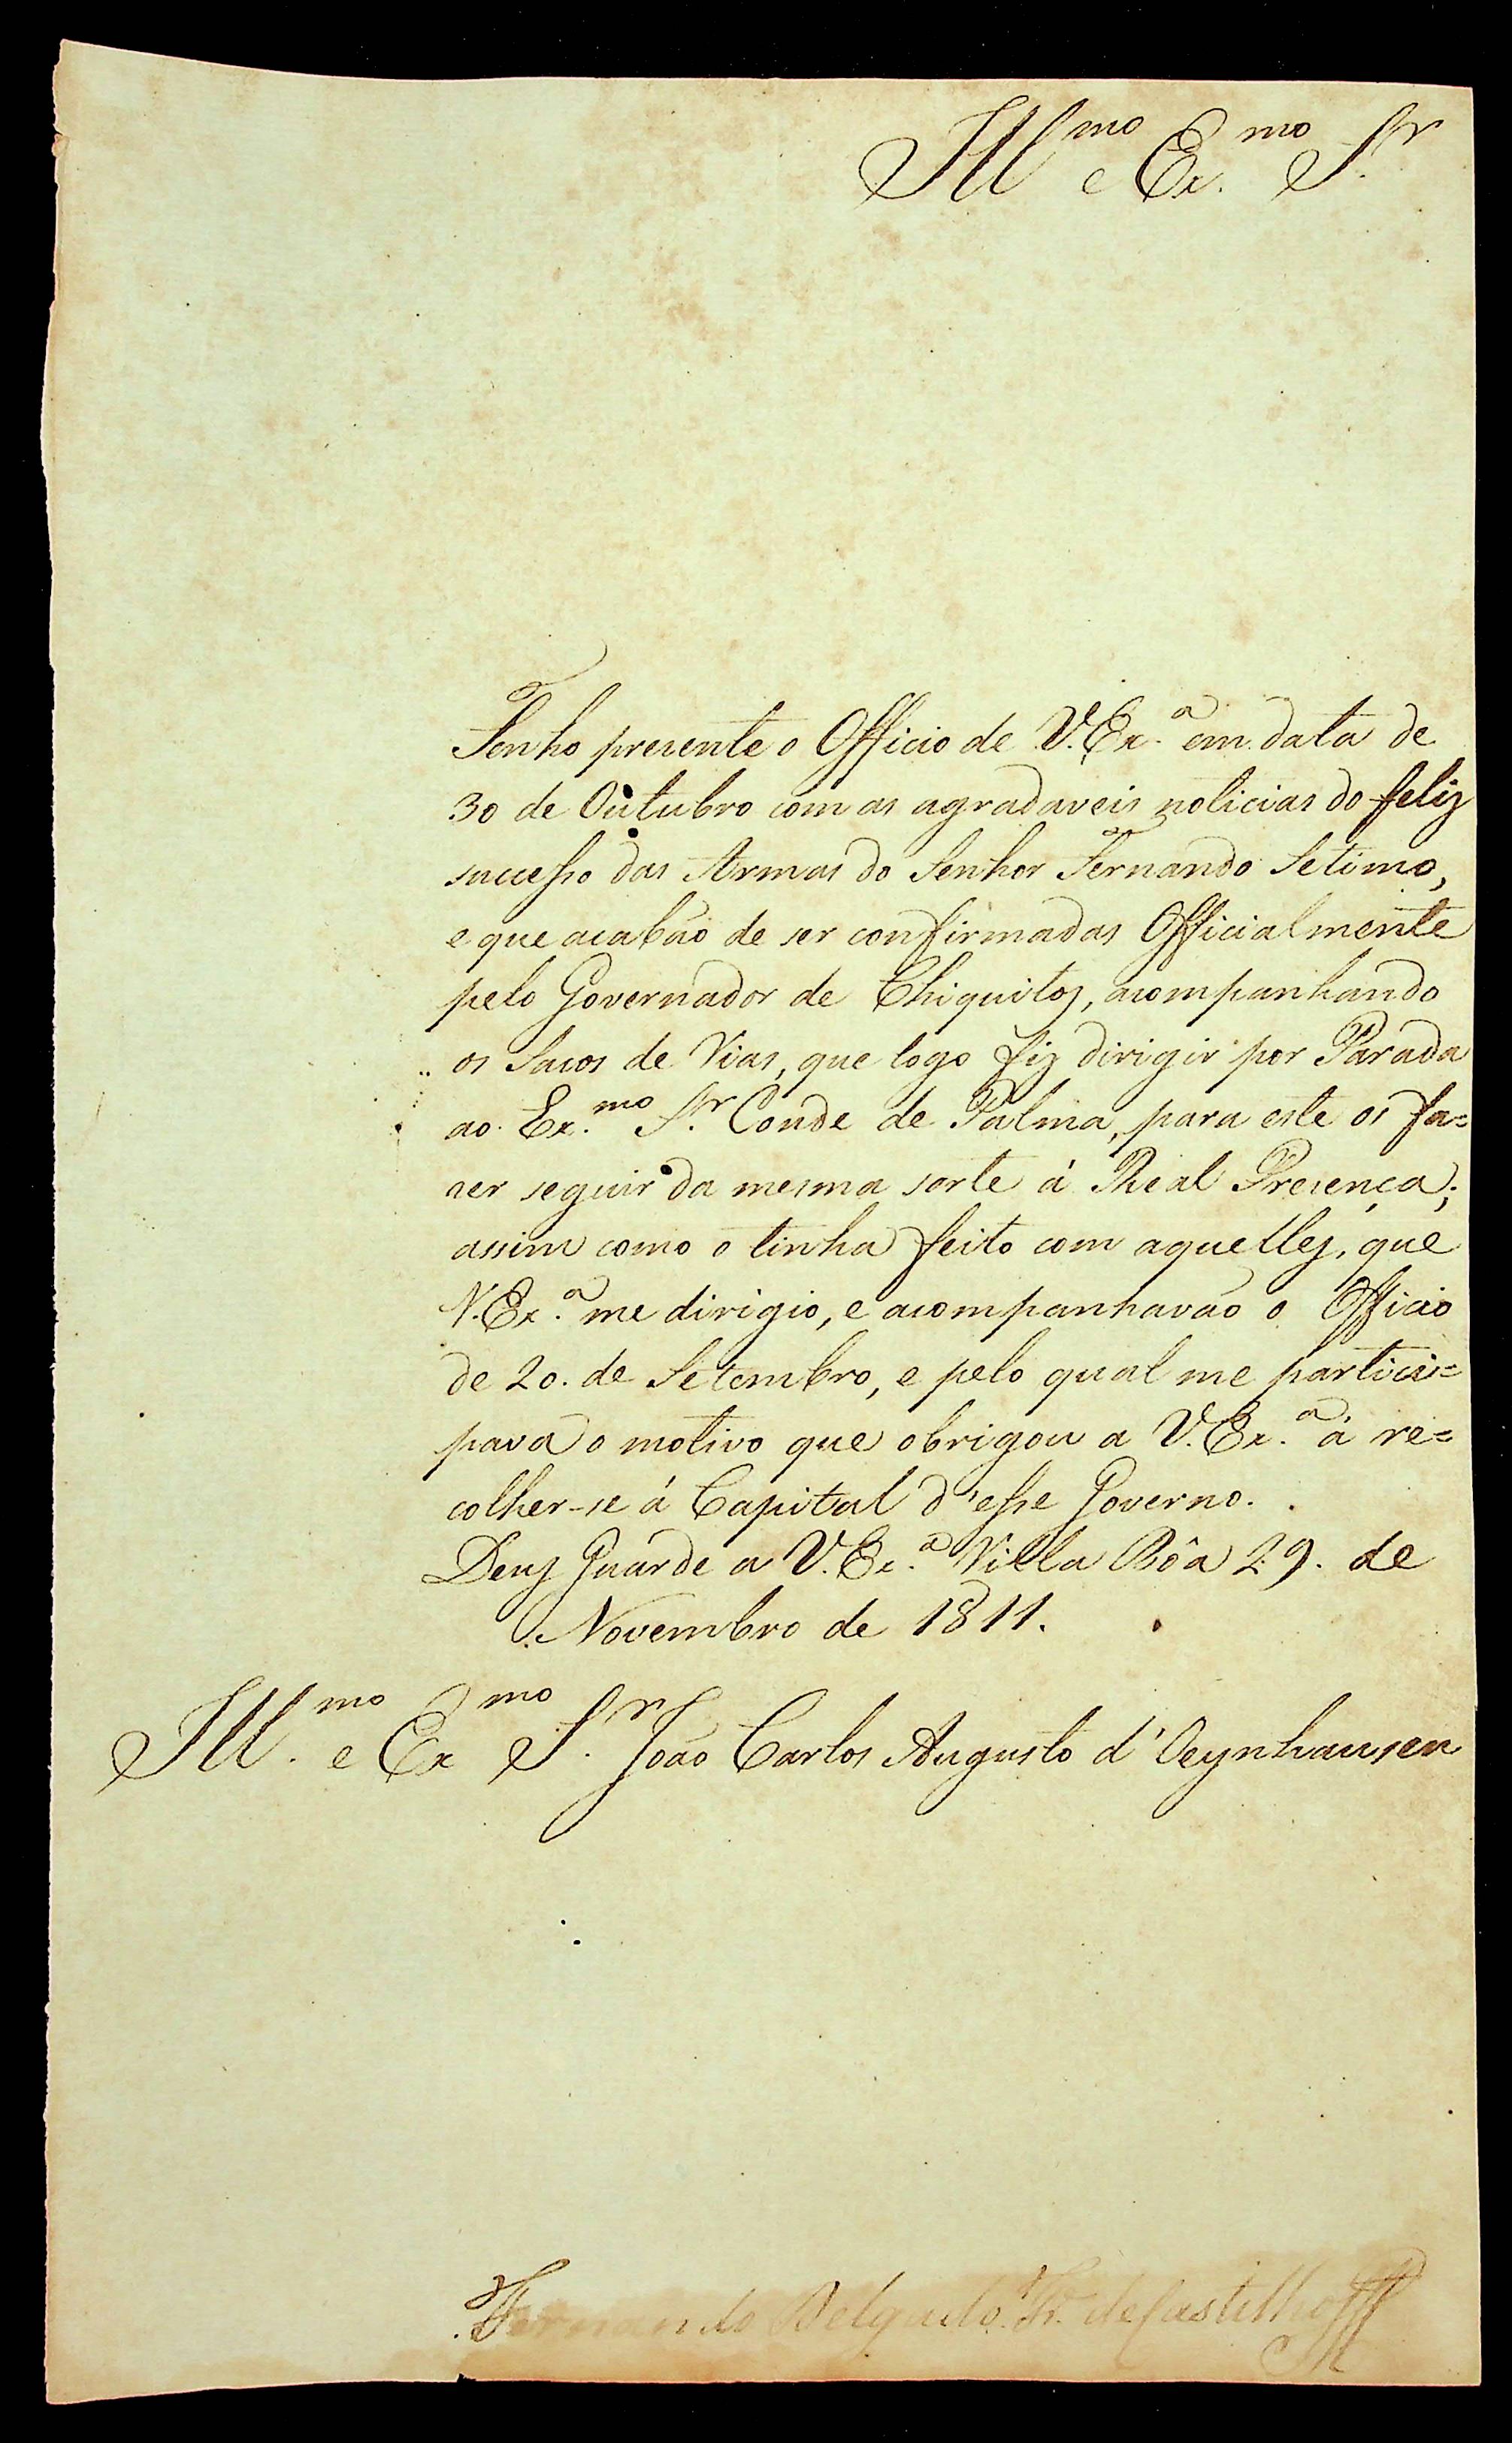 Ill^mo e Ex.^mo S.^r
Tenho presente o Officio de V. Ex.^a em data de
30 de Outubro com as agradaveis noticias do feliz
successo das Armas do Senhor Fernando Setimo,
e que acabão de ser confirmadas Officialmente
pelo Governador de Chiquitos, acompanhando
os Sacos de Vias, que logo fiz dirigir por Parada
ao Ex.^mo S.^r Conde de Palma, para este os fa=
zer seguir da mesma sorte á Real Presença;
assim como o tinha feito com aquelles, que
V. Ex.^a me dirigio, e acompanhavão o Officio
de 20. de Setembro, e pelo qual me partici=
pava o motivo que obrigou a V. Ex.^a á re=
colher-se á Capital d'esse Governo.
Deus Guarde a V. Ex.^a Villa Bôa 29. de
Novembro de 1811.
Ill.^mo e Ex^mo S.^r João Carlos Augusto d'Oeynhausen
Fernando Delgado Fr. de Castilho